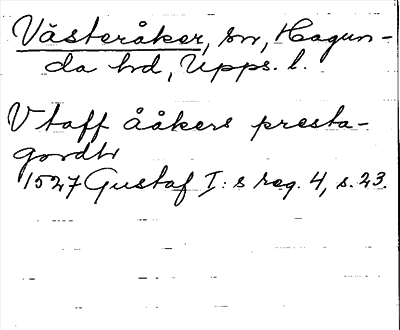 Västeråker, sn, Hagun-
da hd, Upps. l.
V taff Ååkers presta-
gordh
1527 Gustaf I:s reg. 4, s. 23.